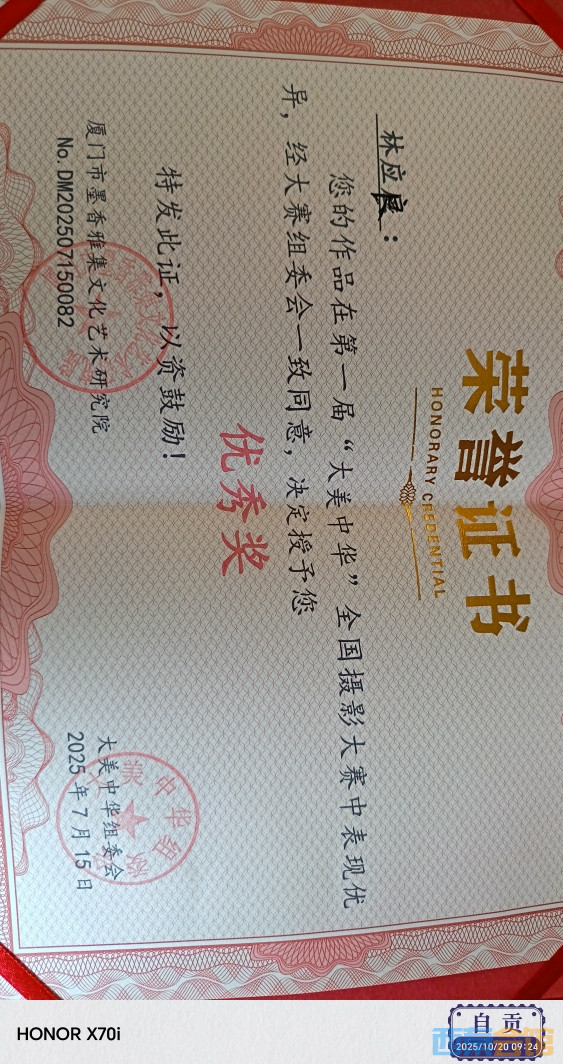 荣誉证书
HONORARY CREDENTIAL
林应良：
您的作品在第一届“大美中华”全国摄影大赛中表现优
异，经大赛组委会一致同意，决定授予您
优秀奖
特发此证，以资鼓励！
厦门市墨香雅集文化艺术研究院
No. DM202507150082
大美中华组委会
2025年7月15日
HONOR X70i
自贡
2025/10/20 09:24